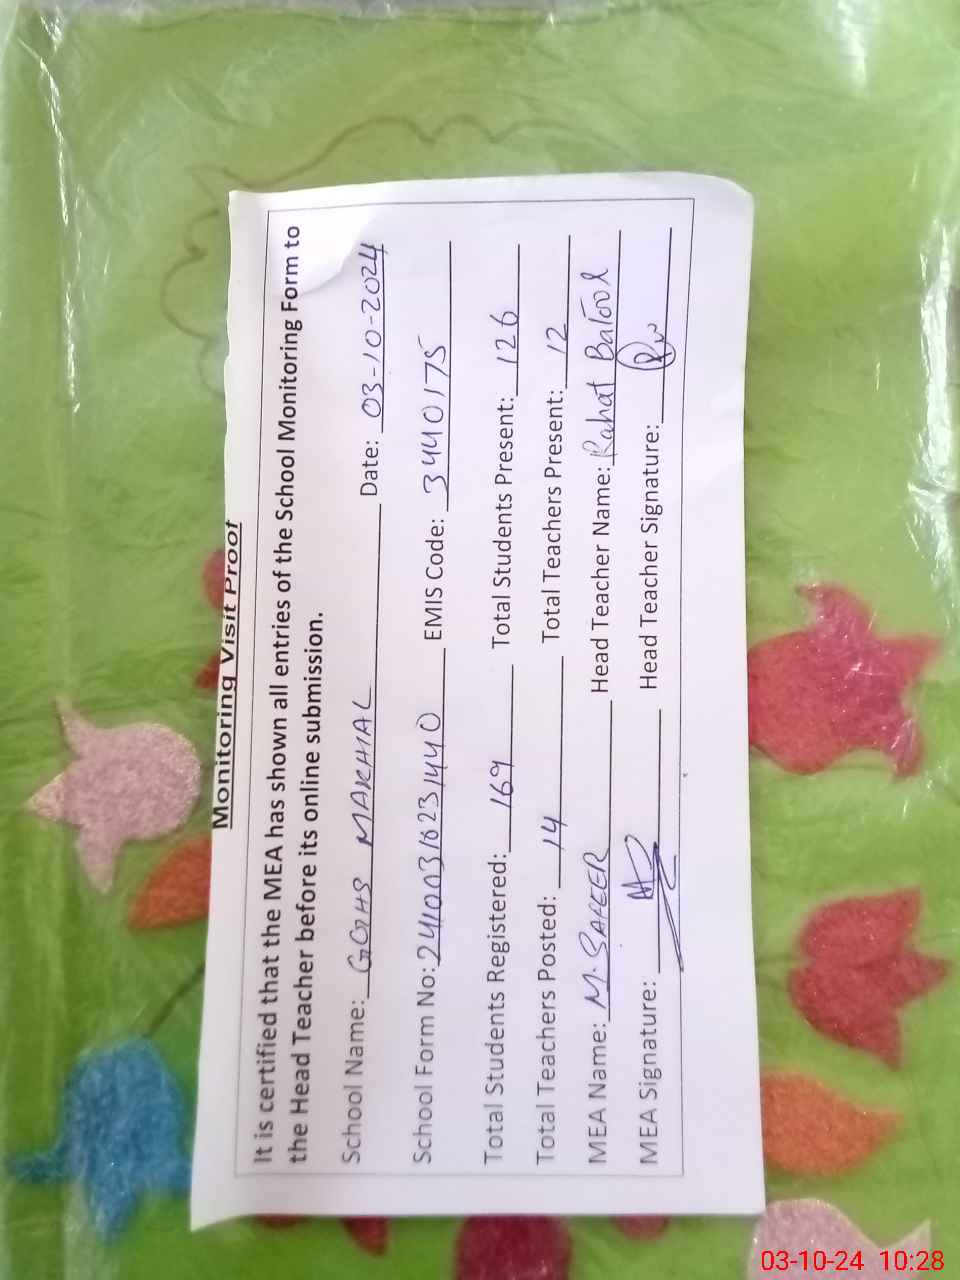 Monitoring Visit Proof
It is certified that the MEA has shown all entries of the School Monitoring Form to
the Head Teacher before its online submission.
School Name: GGHS MAKHIAL Date: 03-10-2024
School Form No: 24100316231440 EMIS Code: 34440175
Total Students Registered: 169 Total Students Present: 126
Total Teachers Posted: 14 Total Teachers Present: 12
MEA Name: M. SAFEER Head Teacher Name: Rahat Batool
MEA Signature: Head Teacher Signature:
03-10-24 10:28